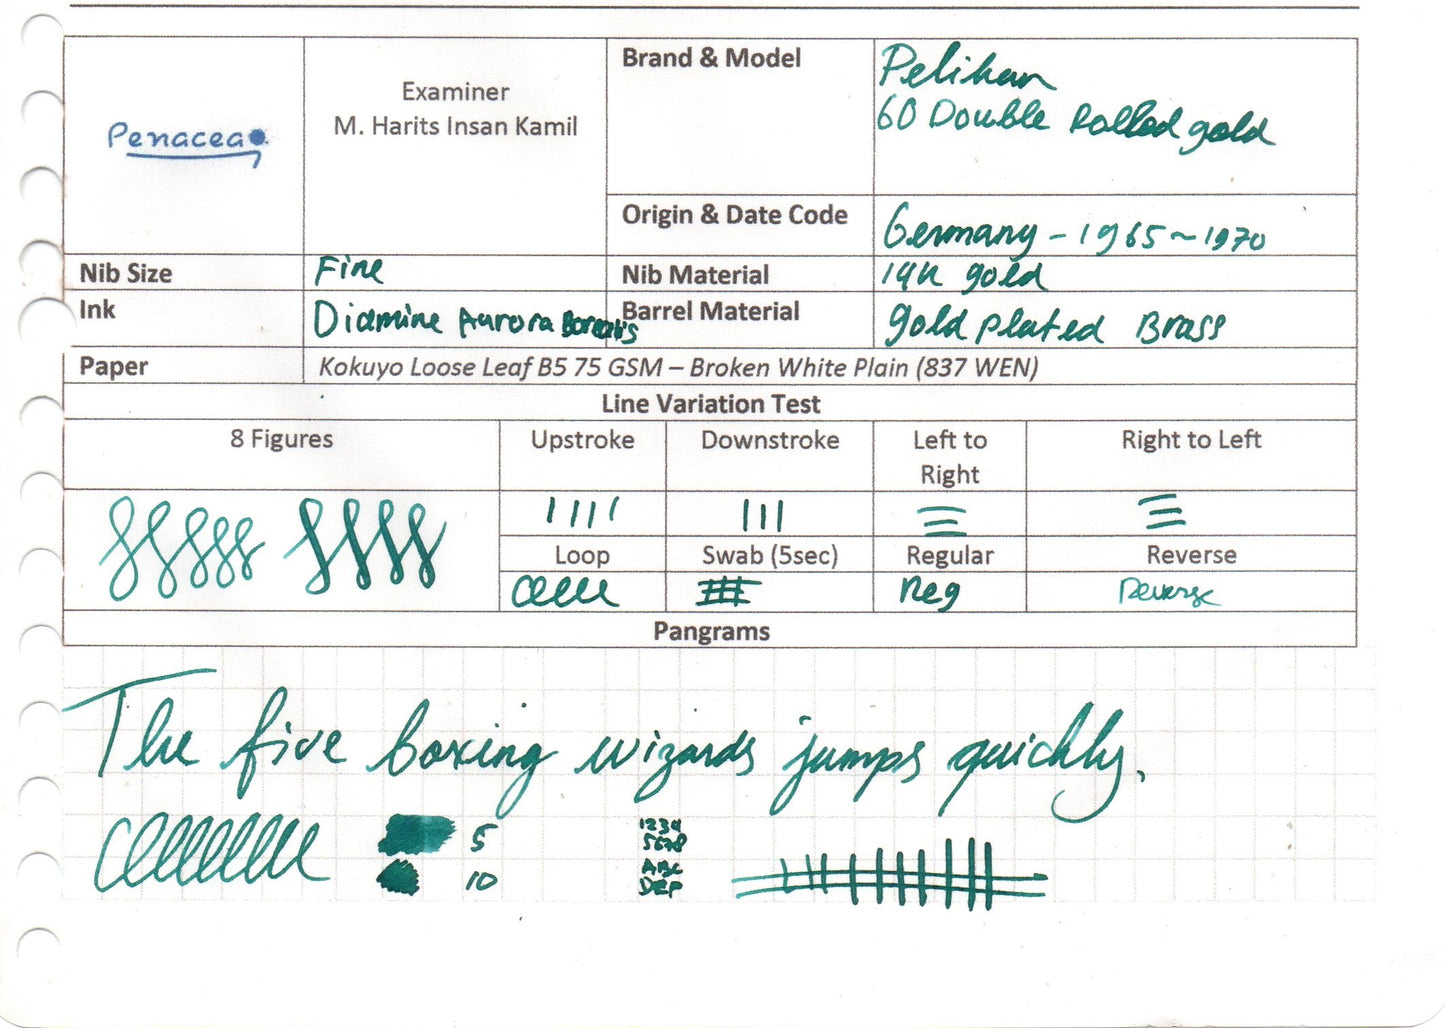 Penacea
Examiner
M. Harits Insan Kamil
Brand & Model
Pelikan
60 Double Rolled gold
Origin & Date Code
Germany - 1965 ~ 1970
Nib Size
Fine
Nib Material
14K gold
Ink
Diamine Aurora Borealis
Barrel Material
gold plated Brass
Paper
Kokuyo Loose Leaf B5 75 GSM – Broken White Plain (837 WEN)
Line Variation Test
8 Figures
Upstroke
Downstroke
Left to
Right
Right to Left
Loop
Swab (5sec)
Regular
Reverse
Reg
Reverse
Pangrams
The five boxing wizards jumps quickly.
5
10
1234
5678
ABC
DEF